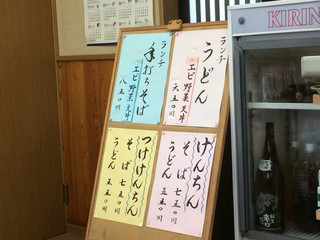 ランチ
うどん
エビ野菜天丼
六五〇円
ランチ
手打ちそば
エビ野菜天丼
八五〇円
けんちん
そば 七五〇円
うどん 五五〇円
つけけんちん
そば 七五〇円
うどん 五五〇円
KIRIN